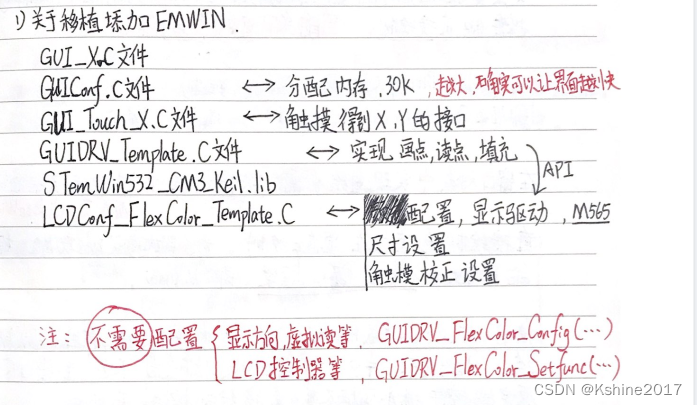 1) 关于移植添加EMWIN.
GUI_X.C文件
GUIConf.C文件 ↔ 分配内存, 30K, 越大, 确实可以让界面越快
GUI_Touch_X.C文件 ↔ 触摸得到X,Y的接口
GUIDRV_Template.C文件 ↔ 实现画点,读点,填充
API
STemWin532_CM3_Keil.lib
LCDConf_FlexColor_Template.C ↔ 配置, 显示驱动, M565
尺寸设置
触摸校正设置
注: 不需要配置 { 显示方向,虚拟读等, GUIDRV_FlexColor_Config(…)
LCD控制器等, GUIDRV_FlexColor_Setfunc(…)
CSDN @Kshine2017